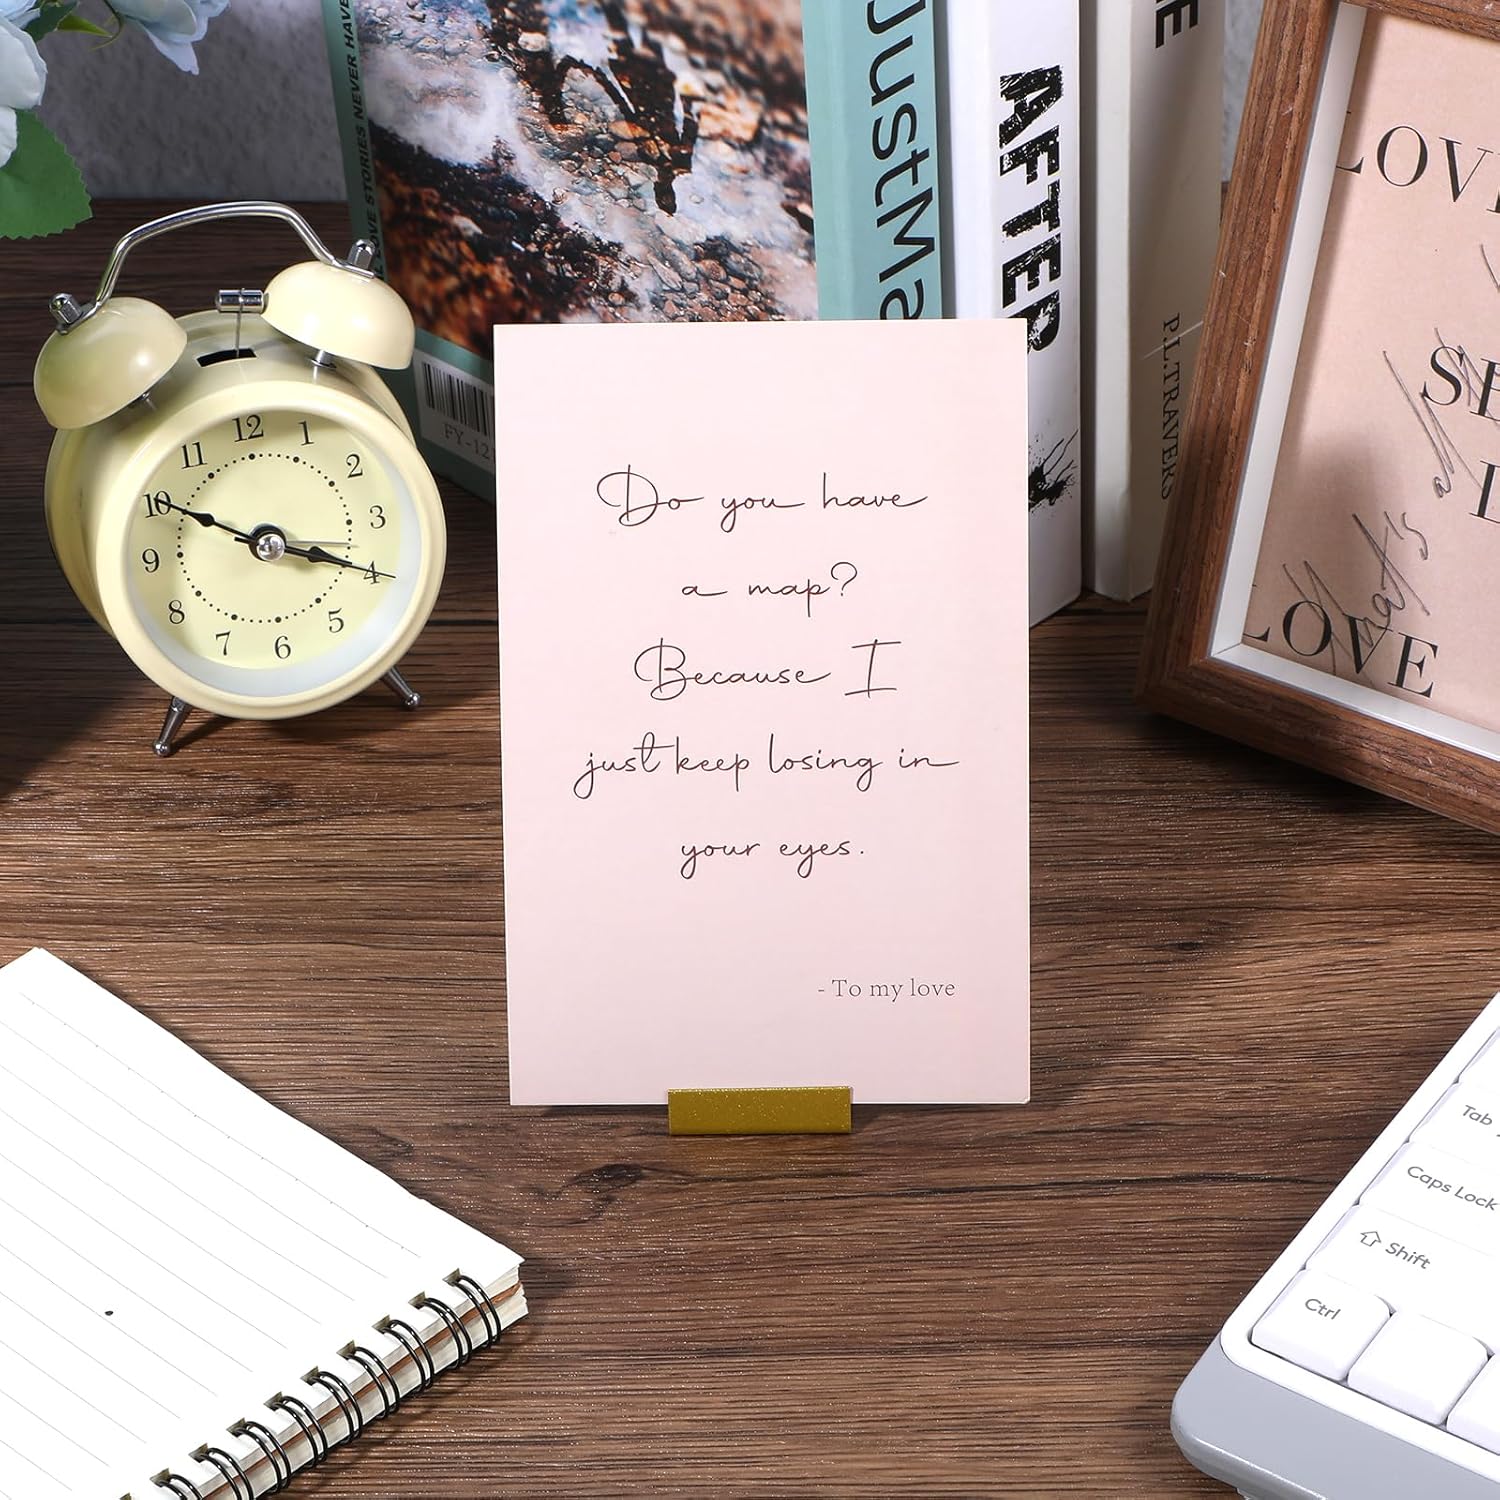 LOVE STORIES NEVER HAVE
FY-12
JustMa
AFTER
P.L.TRAVERS
LOVE
SE
L
all
that's
LOVE
12
1
2
3
4
5
6
7
8
9
10
11
Do you have
a map?
Because I
just keep losing in
your eyes.
- To my love
Tab
Caps Lock
Shift
Ctrl